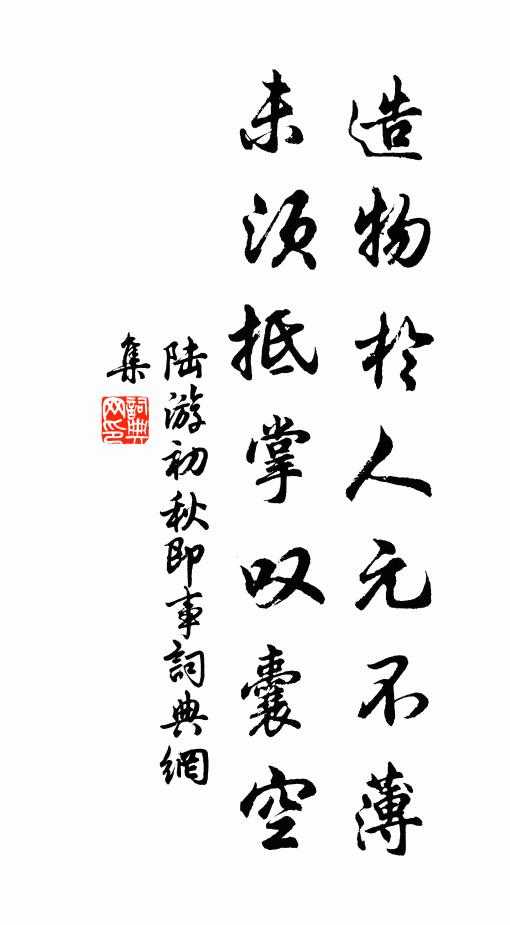 造物於人元不薄
未須抵掌叹囊空
陆游初秋即事詞典網
集
詞典網印